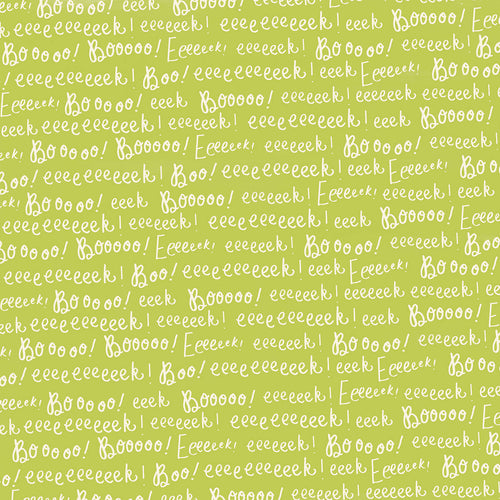 eeeek! Booooo! eeeeeek! eeeek
eeeeeeeeeek! eeeeeek! eeeeeeeeeek! eeek Booooo! Eeeeeek!
Booooo! Booooo! Eeeeeek! eeeeeek! Booooo! eeeeeek!
eeeeeeeeeek! Boo! eeeeeeeeeek! eeek Eeeeeek! Booooo!
Eeeeeek! Booooo! eeek Booooo! eeeeeek! eeeeeek eeeeeek!
eeek eeeeeeeeeek! eeeeeek! eeeeeeeeeek! eeek Booooo!
Booooo! Booooo! Eeeeeek! eeeeeek! Booooo! eeeeeek!
Boo! eeeeeeeeeek! Boo! eeeeeeeeeek! eeek Eeeeeek! Booooo!
Booooo! eeek Booooo! eeeeeek! Eeeeeek! eeeeeek! eeek
eeeeeeeeeek! eeeeeek! eeeeeeeeeek! eeek Booooo! Eeeeeek!
Booooo! Booooo! Eeeeeek! eeeeeek! Booooo! eeeeeek! Boo
eeeeeeeeeek! Boo! eeeeeeeeeek! eeek Eeeeeek! Booooo!
Eeeeeek! Booooo! eeek Booooo! eeeeeek! eeeeeek eeeeeek!
eeek eeeeeeeeeek! eeeeeek! eeeeeeeeeek! eeek Booooo!
Booooo! Booooo! Eeeeeek! eeeeeek! Booooo! eeeeeek!
Boo! eeeeeeeeeek! Boo! eeeeeeeeeek! eeek Eeeeeek! Booo
Booooo! eeek Booooo! eeeeeek! Eeeeeek! eeeeeek! eeek
eeeeeeeeeek! eeeeeek! eeeeeeeeeek! eeek Booooo!
Booooo! Booooo! Eeeeeek! eeeeeek! Booooo! eeeeeek!
eeeeeeeeeek! Boo! eeeeeeeeeek! eeek Eeeeeek! Booooo!
Booooo! eeek Booooo! eeeeeek! eeeeeek!